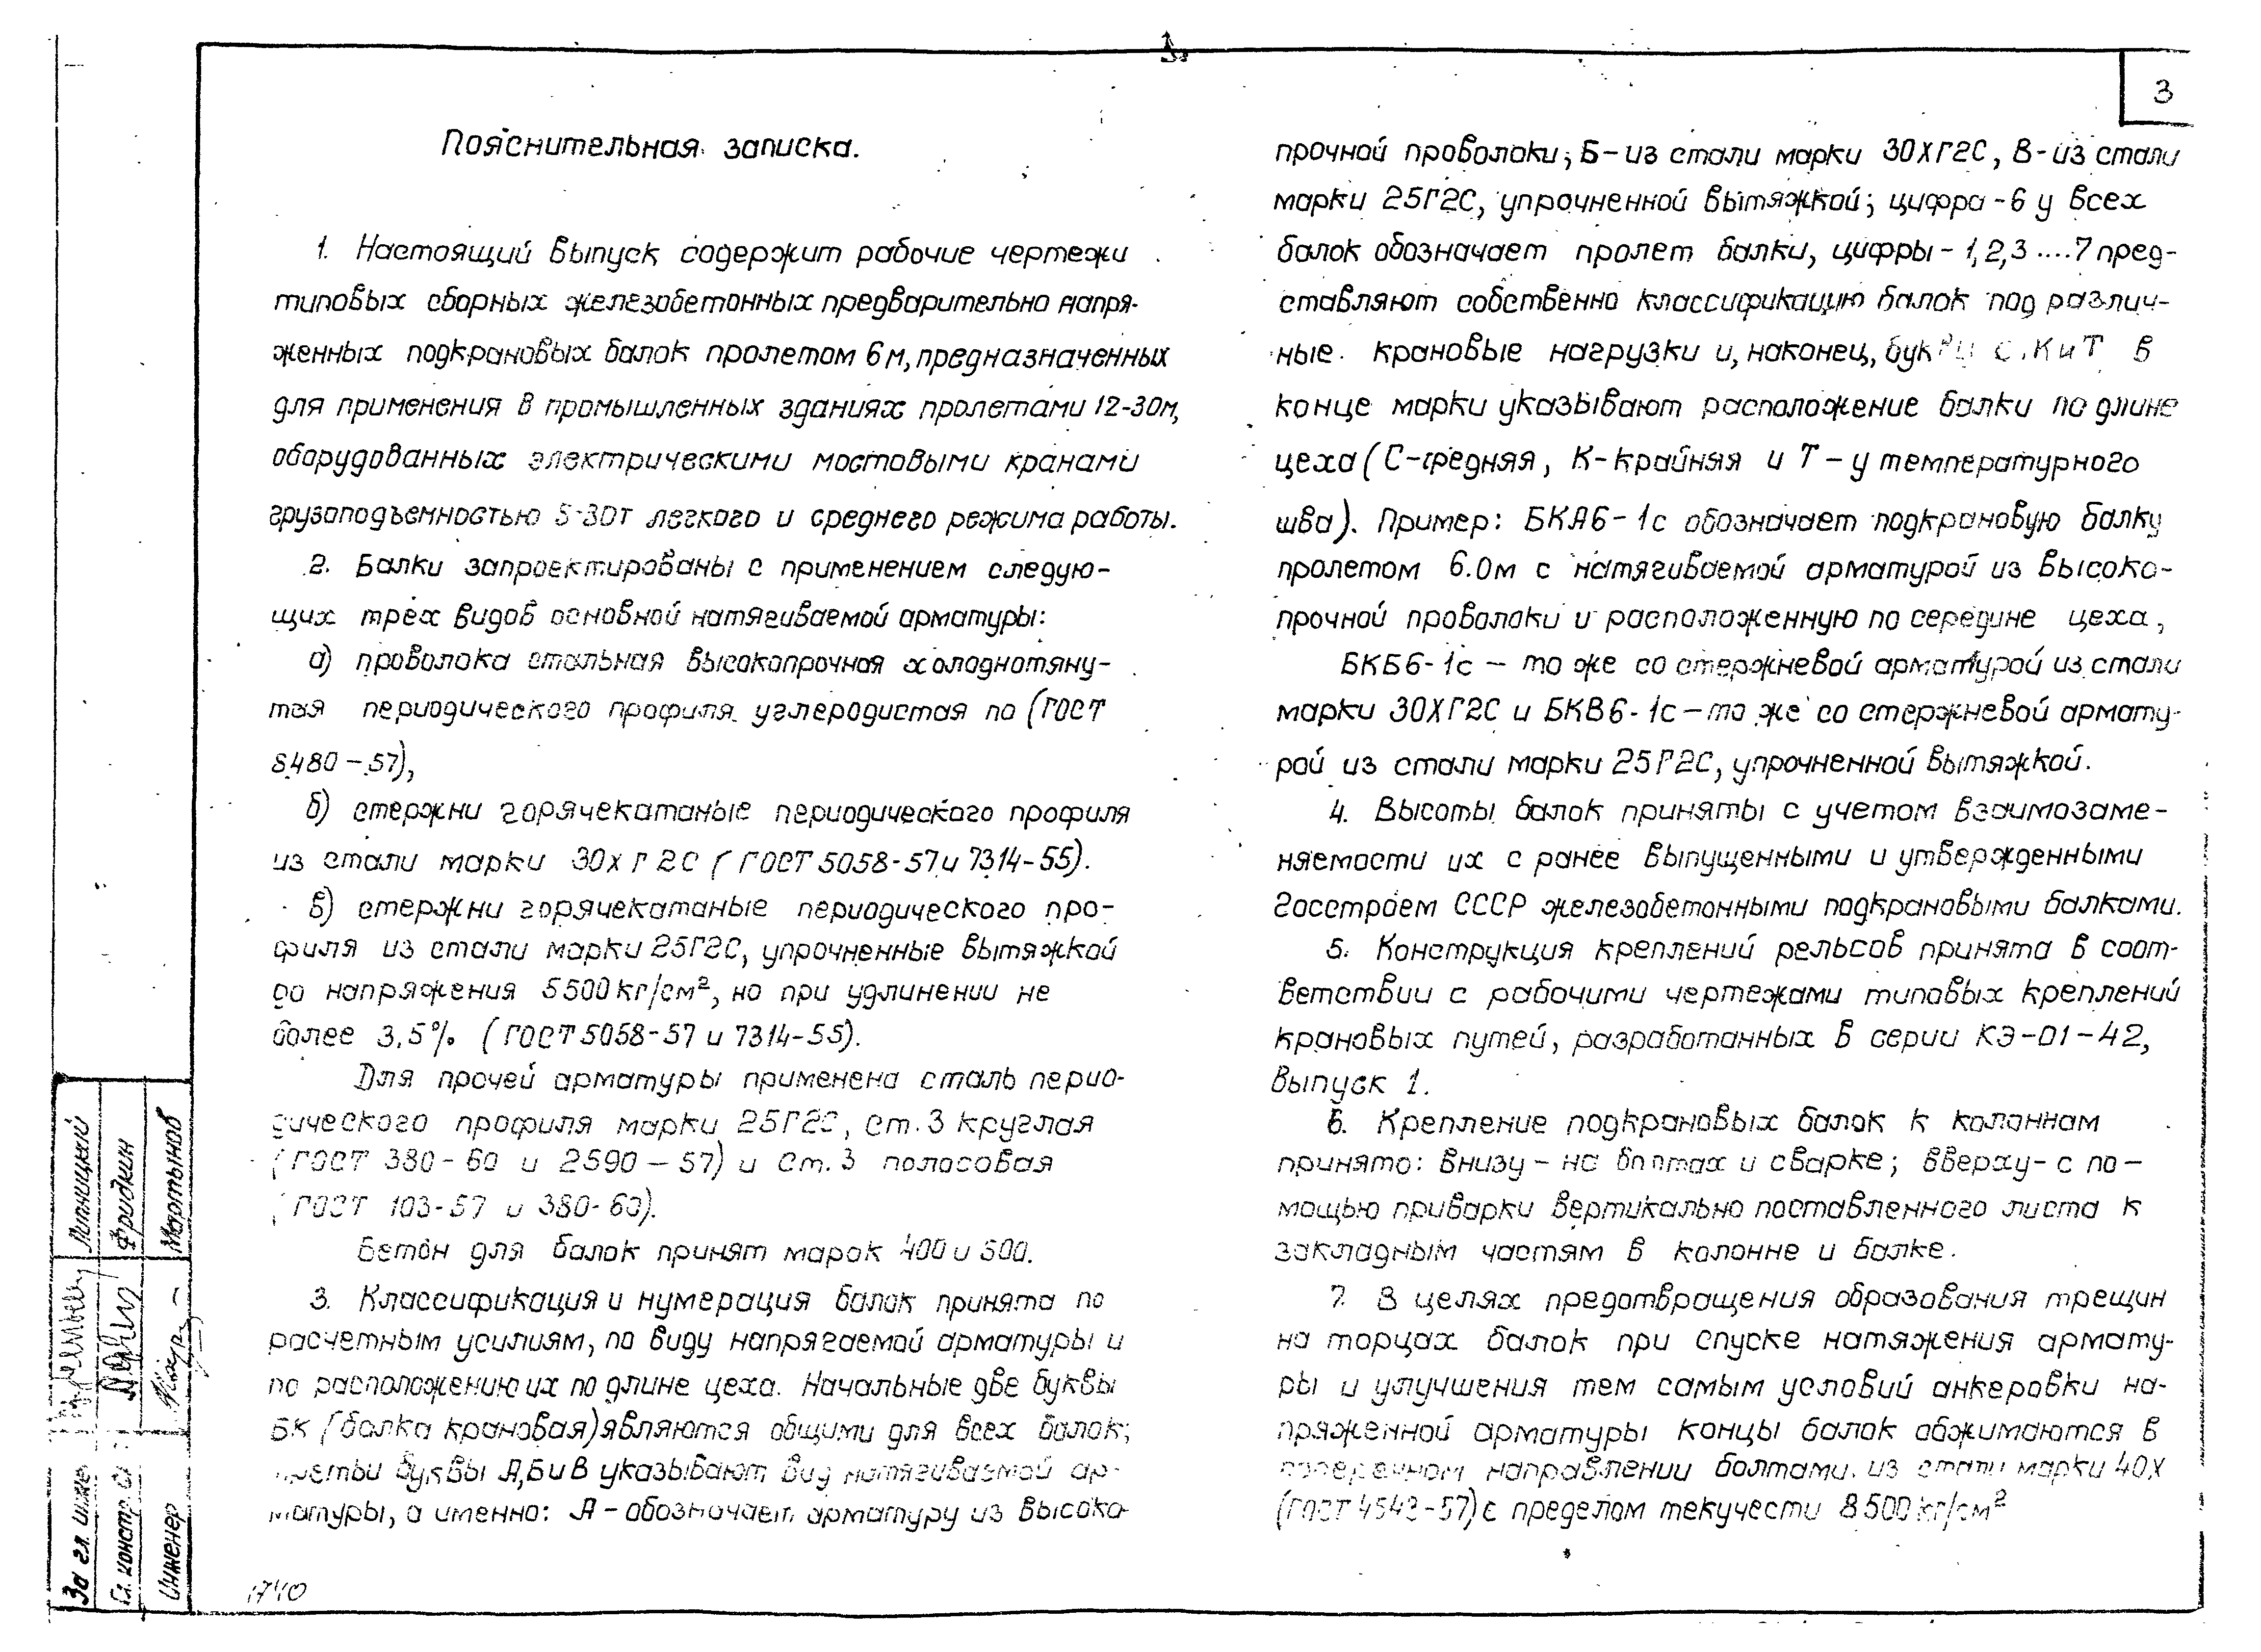 3
Пояснительная записка.
1. Настоящий выпуск содержит рабочие чертежи
типовых сборных железобетонных предварительно напря-
женных подкрановых балок пролетом 6м, предназначенных
для применения в промышленных зданиях пролетами 12-30м,
оборудованных электрическими мостовыми кранами
грузоподъемностью 5-30т легкого и среднего режима работы.
2. Балки запроектированы с применением следую-
щих трех видов основной натягиваемой арматуры:
а) проволока стальная высокопрочная холоднотяну-
тая периодического профиля углеродистая по (ГОСТ
8480-57),
б) стержни горячекатаные периодического профиля
из стали марки 30ХГ2С (ГОСТ 5058-57 и 7314-55).
в) стержни горячекатаные периодического про-
филя из стали марки 25Г2С, упрочненные вытяжкой
до напряжения 5500 кг/см², но при удлинении не
более 3,5% (ГОСТ 5058-57 и 7314-55).
Для прочей арматуры применена сталь перио-
дического профиля марки 25Г2С, ст. 3 круглая
(ГОСТ 380-60 и 2590-57) и ст. 3 полосовая
(ГОСТ 103-57 и 380-60).
Бетон для балок принят марок 400 и 500.
3. Классификация и нумерация балок принята по
расчетным усилиям, по виду напрягаемой арматуры и
по расположению их по длине цеха. Начальные две буквы
БК (балка крановая) являются общими для всех балок;
третьи буквы А, Б и В указывают вид натягиваемой ар-
матуры, а именно: А - обозначает арматуру из высоко-
прочной проволоки; Б - из стали марки 30ХГ2С, В - из стали
марки 25Г2С, упрочненной вытяжкой; цифра - 6 у всех
балок обозначает пролет балки, цифры - 1,2,3 ....7 пред-
ставляют собственно классификацию балок под различ-
ные крановые нагрузки и, наконец, буквы С, К и Т в
конце марки указывают расположение балки по длине
цеха (С - средняя, К - крайняя и Т - у температурного
шва). Пример: БКА6-1с обозначает подкрановую балку
пролетом 6.0м с натягиваемой арматурой из высоко-
прочной проволоки и расположенную по середине цеха,
БКБ6-1с - то же со стержневой арматурой из стали
марки 30ХГ2С и БКВ6-1с - то же со стержневой армату-
рой из стали марки 25Г2С, упрочненной вытяжкой.
4. Высоты балок приняты с учетом взаимозаме-
няемости их с ранее выпущенными и утвержденными
Госстроем СССР железобетонными подкрановыми балками.
5. Конструкция креплений рельсов принята в соот-
ветствии с рабочими чертежами типовых креплений
крановых путей, разработанных в серии КЭ-01-42,
выпуск 1.
6. Крепление подкрановых балок к колоннам
принято: внизу - на болтах и сварке; вверху - с по-
мощью приварки вертикально поставленного листа к
закладным частям в колонне и балке.
7. В целях предотвращения образования трещин
на торцах балок при спуске натяжения армату-
ры и улучшения тем самым условий анкеровки на-
пряженной арматуры концы балок обжимаются в
поперечном направлении болтами из стали марки 40Х
(ГОСТ 4543-57) с пределом текучести 8500 кг/см²
За гл. инже
Липницкий
Гл. констр.
Фридкин
Инженер
Мартынов
1740